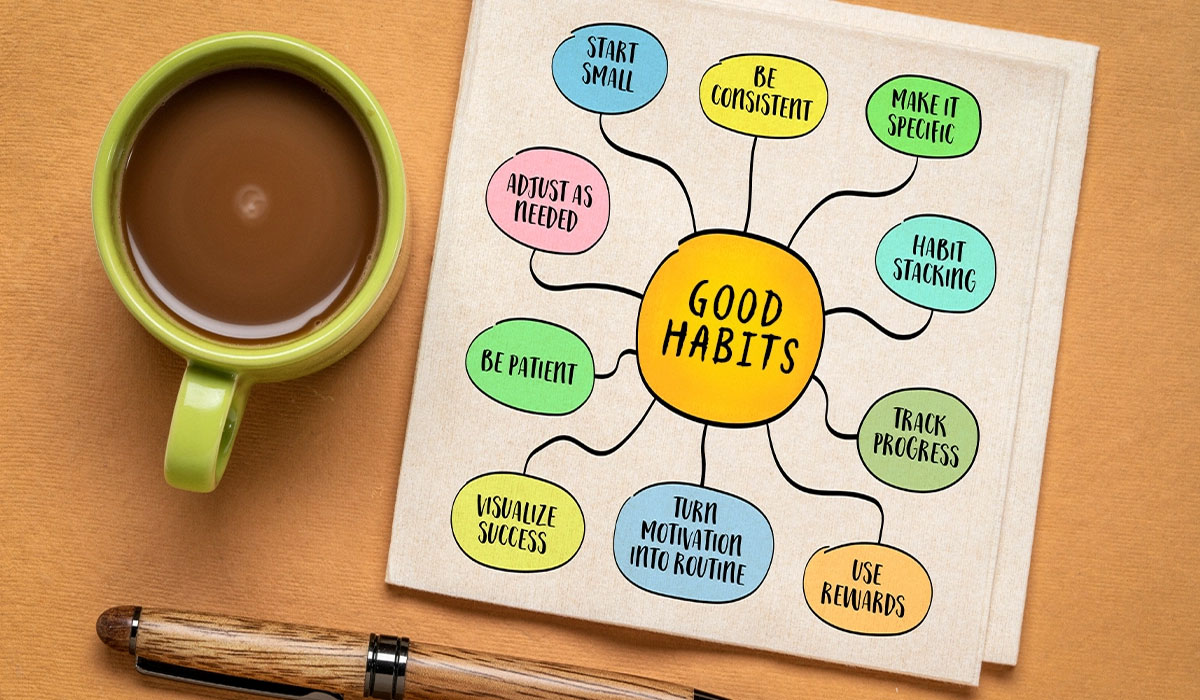 START
SMALL
BE
CONSISTENT
MAKE IT
SPECIFIC
ADJUST AS
NEEDED
HABIT
STACKING
GOOD
HABITS
BE PATIENT
TRACK
PROGRESS
VISUALIZE
SUCCESS
TURN
MOTIVATION
INTO ROUTINE
USE
REWARDS